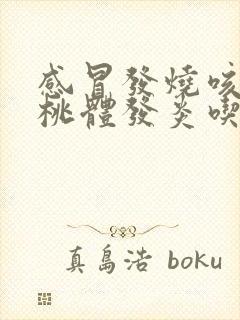 感冒發燒咳
桃體發炎喫
真島浩 boku